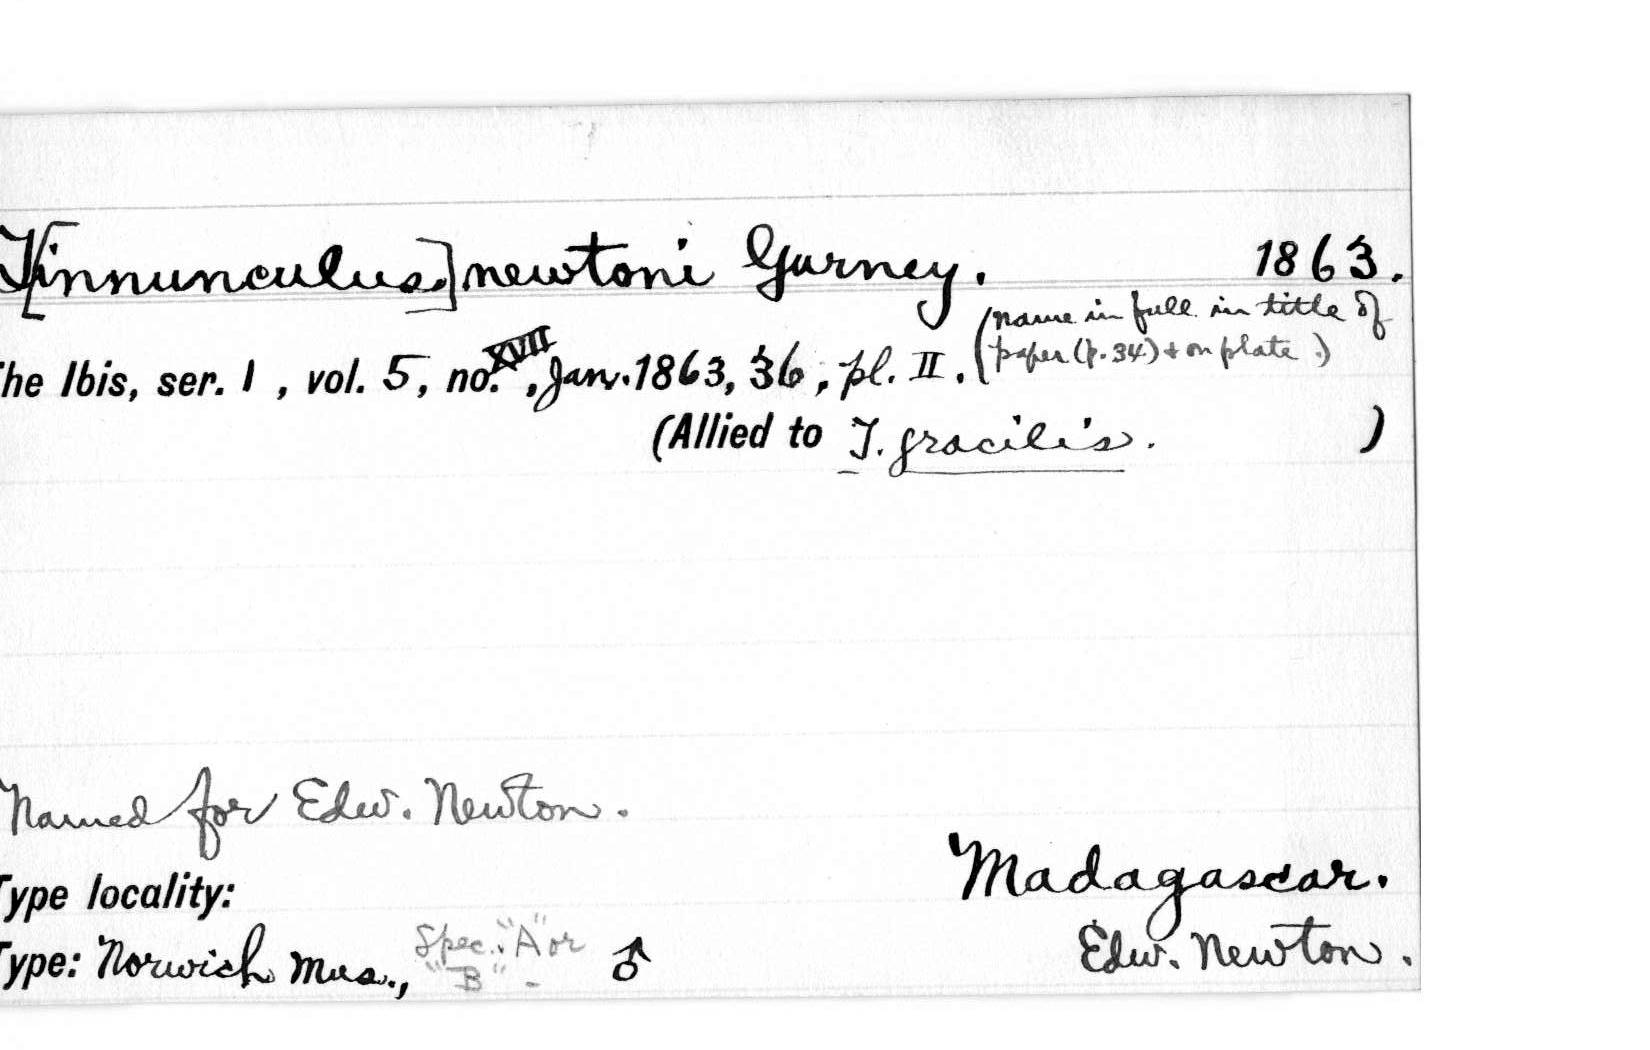 T[innunculus.] newtoni Gurney. 1863.
(name in full in title of
paper (p. 34) + on plate.)
The Ibis, ser. 1, vol. 5, no. XVII, Jan. 1863, 36, pl. II.
(Allied to T. gracilis. )
Named for Edw. Newton.
Type locality: Madagascar.
Type: Norwich Mus., Spec. "A" or "B" - ♂ Edw. Newton.